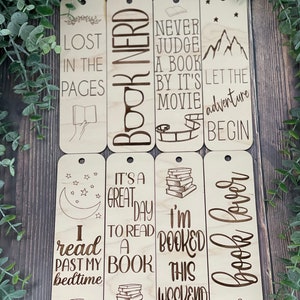 LOST
IN THE
PAGES
BOOK NERD
NEVER
JUDGE
A BOOK
BY IT'S
MOVIE
LET THE
adventure
BEGIN
I
read
PAST MY
bedtime
IT'S A
GREAT
DAY
TO READ
A
BOOK
I'M
BOOKED
THIS
WEEKEND
book lover